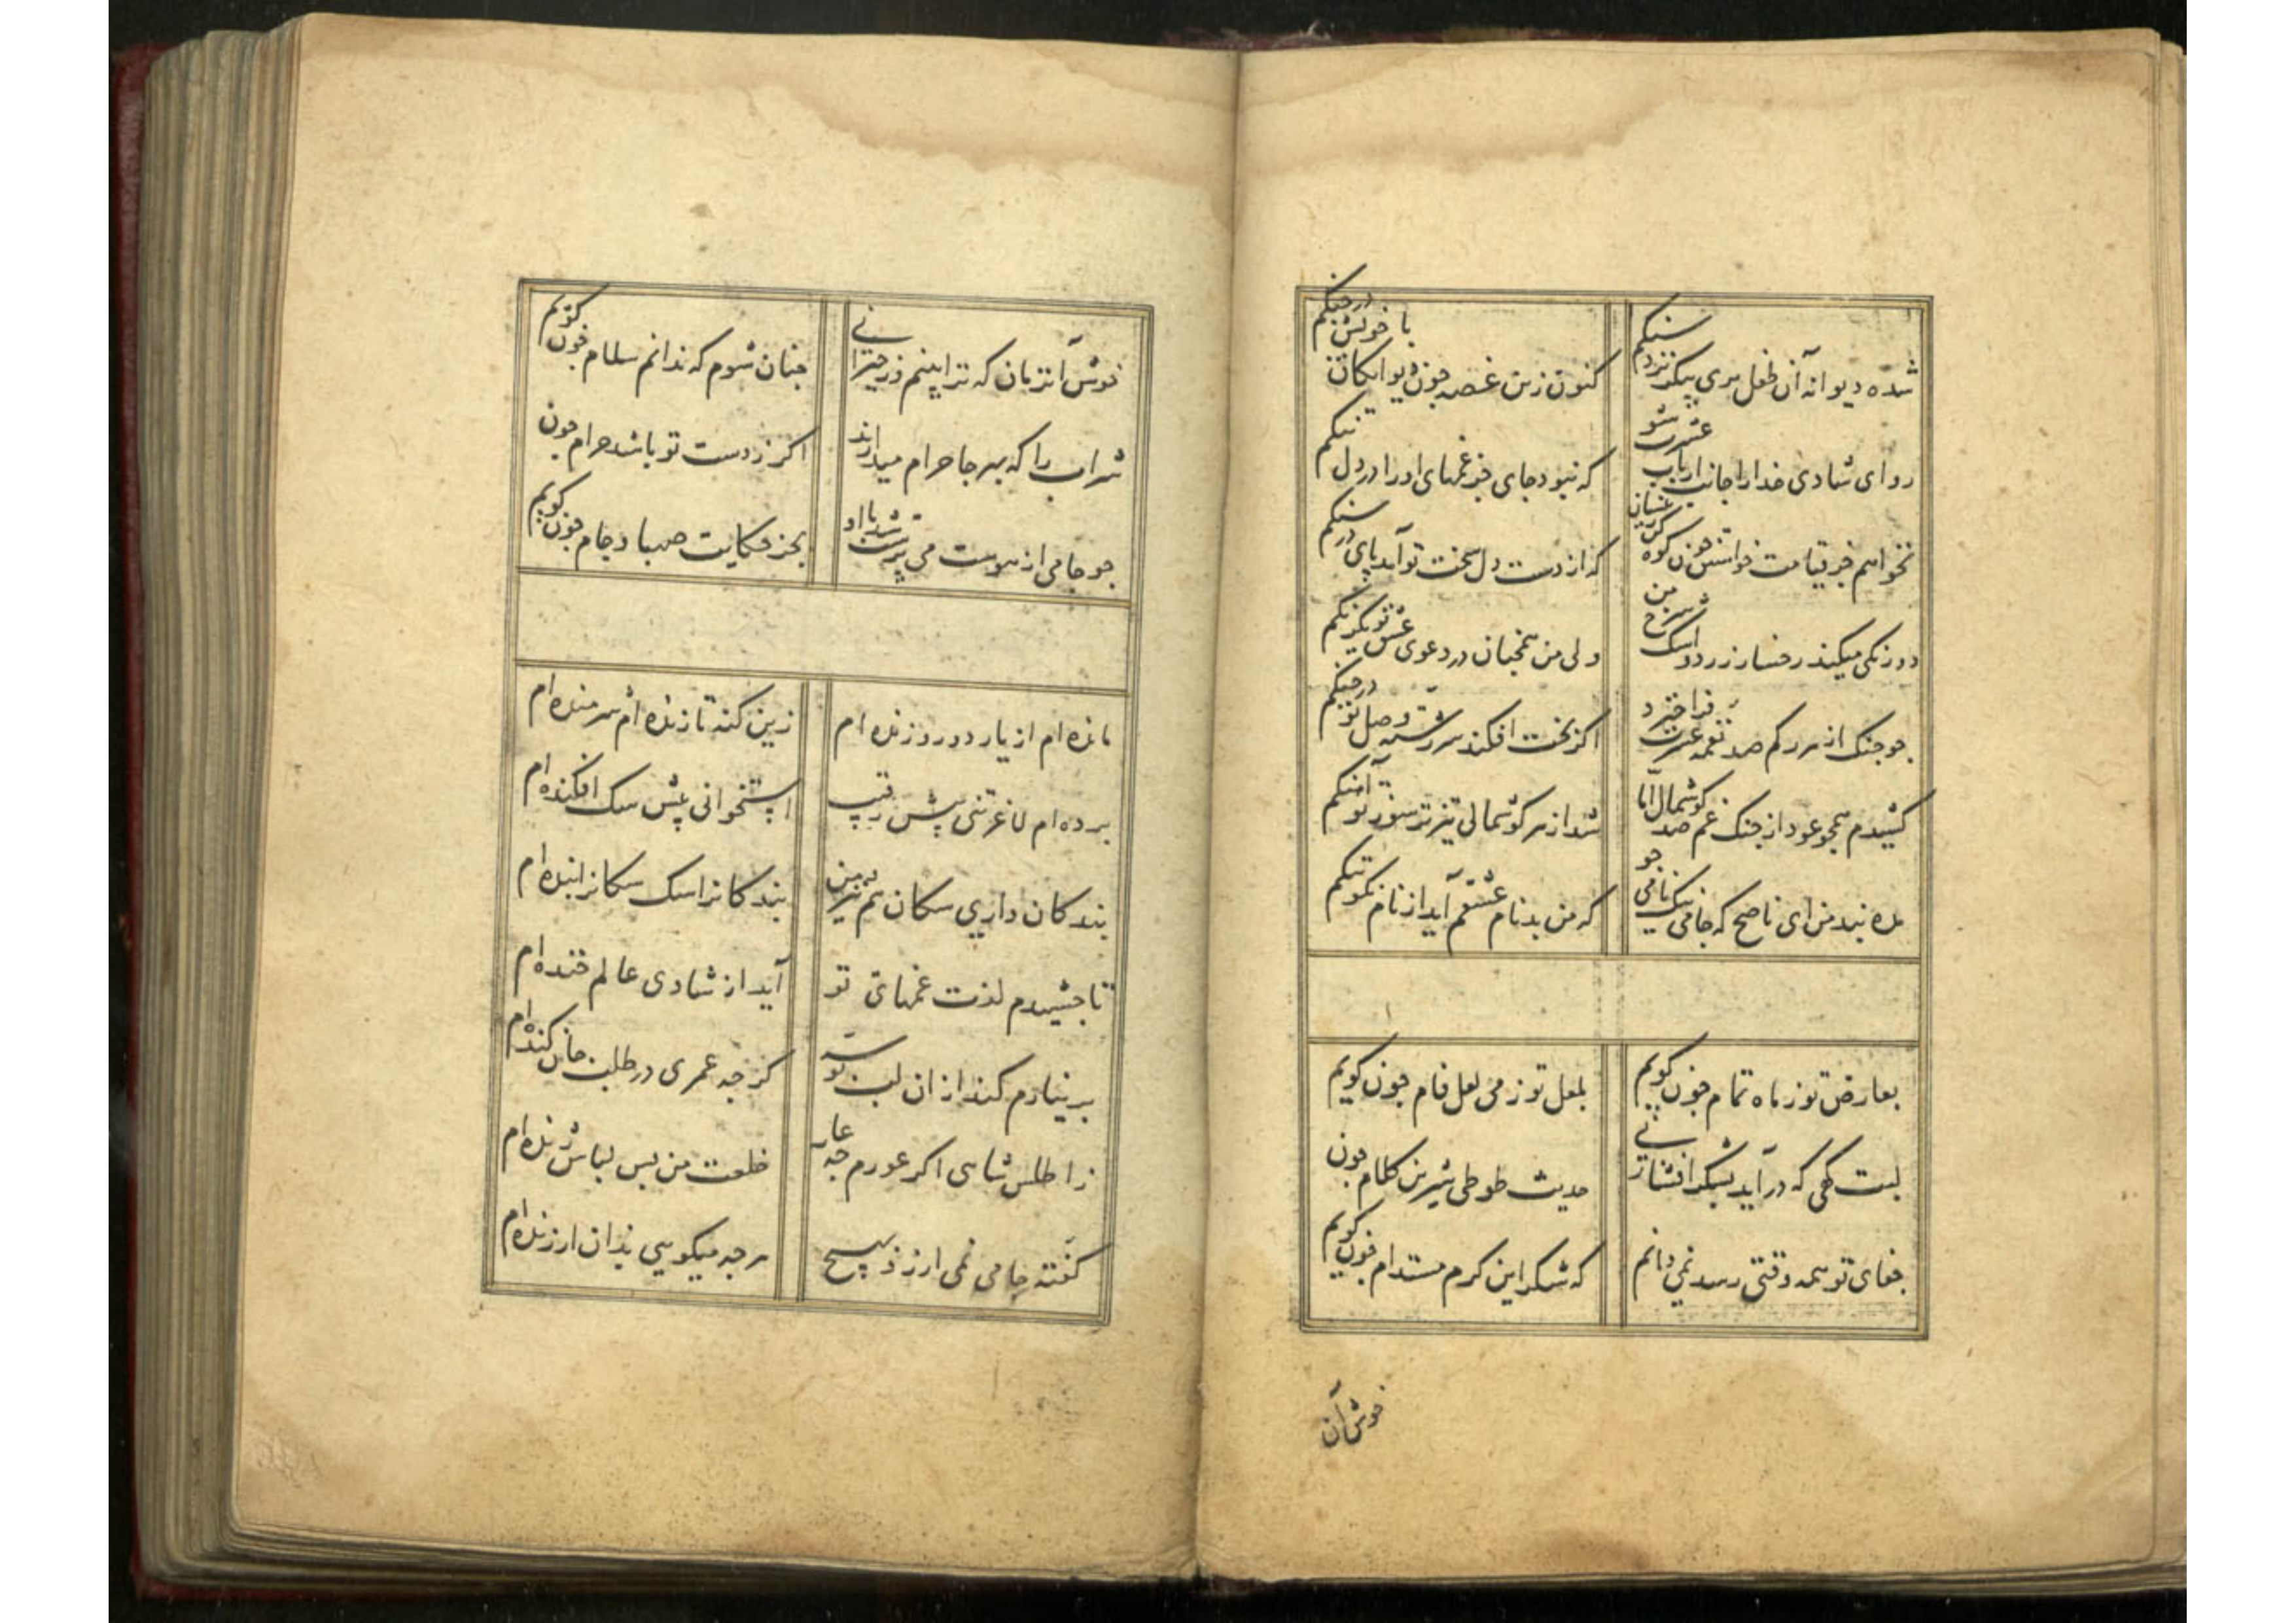 شده دیوانه آن طفل پری پیکر نزد سنکم کنون زین غصه چون دیوانکان با خویش در جنکم
رو ای شادی خدا را جانب ارباب عشرت شو که نبود جای جز غمهای او را در دل تنکم
نخواهم جز قیامت خواستن چون کوه که از دست دل سخت تو آمد پای در سنکم
دو رنکی میکند رخسار زرد و اشک سرخ من ولی من همچنان در دعوی عشق تو یکرنکم
چو چنک از هر رکم صد نغمه عشرت فرا خیزد اکر بخت افکند سررشته وصل تو در چنکم
کشیدم همچو عود از چنک غم صد کوشمال اما شد از هر کوشمالی تیزتر سوز تو آهنکم
مده پندم من ای ناصح که جامی نیک نامی جو که من بدنام عشقم آید از نام نکو ننکم
بعارض تو ز ماه تمام چون کویم بلعل تو ز می لعل فام چون کویم
لبت کهی که در آید بشکر افشانی حدیث طوطی شیرین کلام چون
جفای تو همه وقتی رسد نمی دانم که شکر این کرم مستدام چون کویم
خوش آن
خوش آنزمان که ترا بینم و ز حیرانی چنان شوم که ندانم سلام چون کویم
شراب را که بهر جا حرام میدارند اکر ز دست تو باشد حرام چون
چو جامی از هوست می پرست شد با او بجز حکایت صهبا و جام چون کویم
مانده ام از یار دور و زنده ام زین کنه تا زنده ام شرمنده ام
برده ام لاغر تنی پیش رقیب استخوانی پیش سک افکنده ام
بندکان داری سکان هم نیز من بندکانرا سک سکانرا بنده ام
تا چشیدم لذت غمهای تو آید از شادی عالم خنده ام
بر نیارم کند از ان لب کرچه عمری در طلب جان کنده ام
ز اطلس شاهی اکر عورم چه عار خلعت من بس لباس ژنده ام
کفته جامی نمی ارزد بهیچ هرچه میکویی بدان ارزنده ام